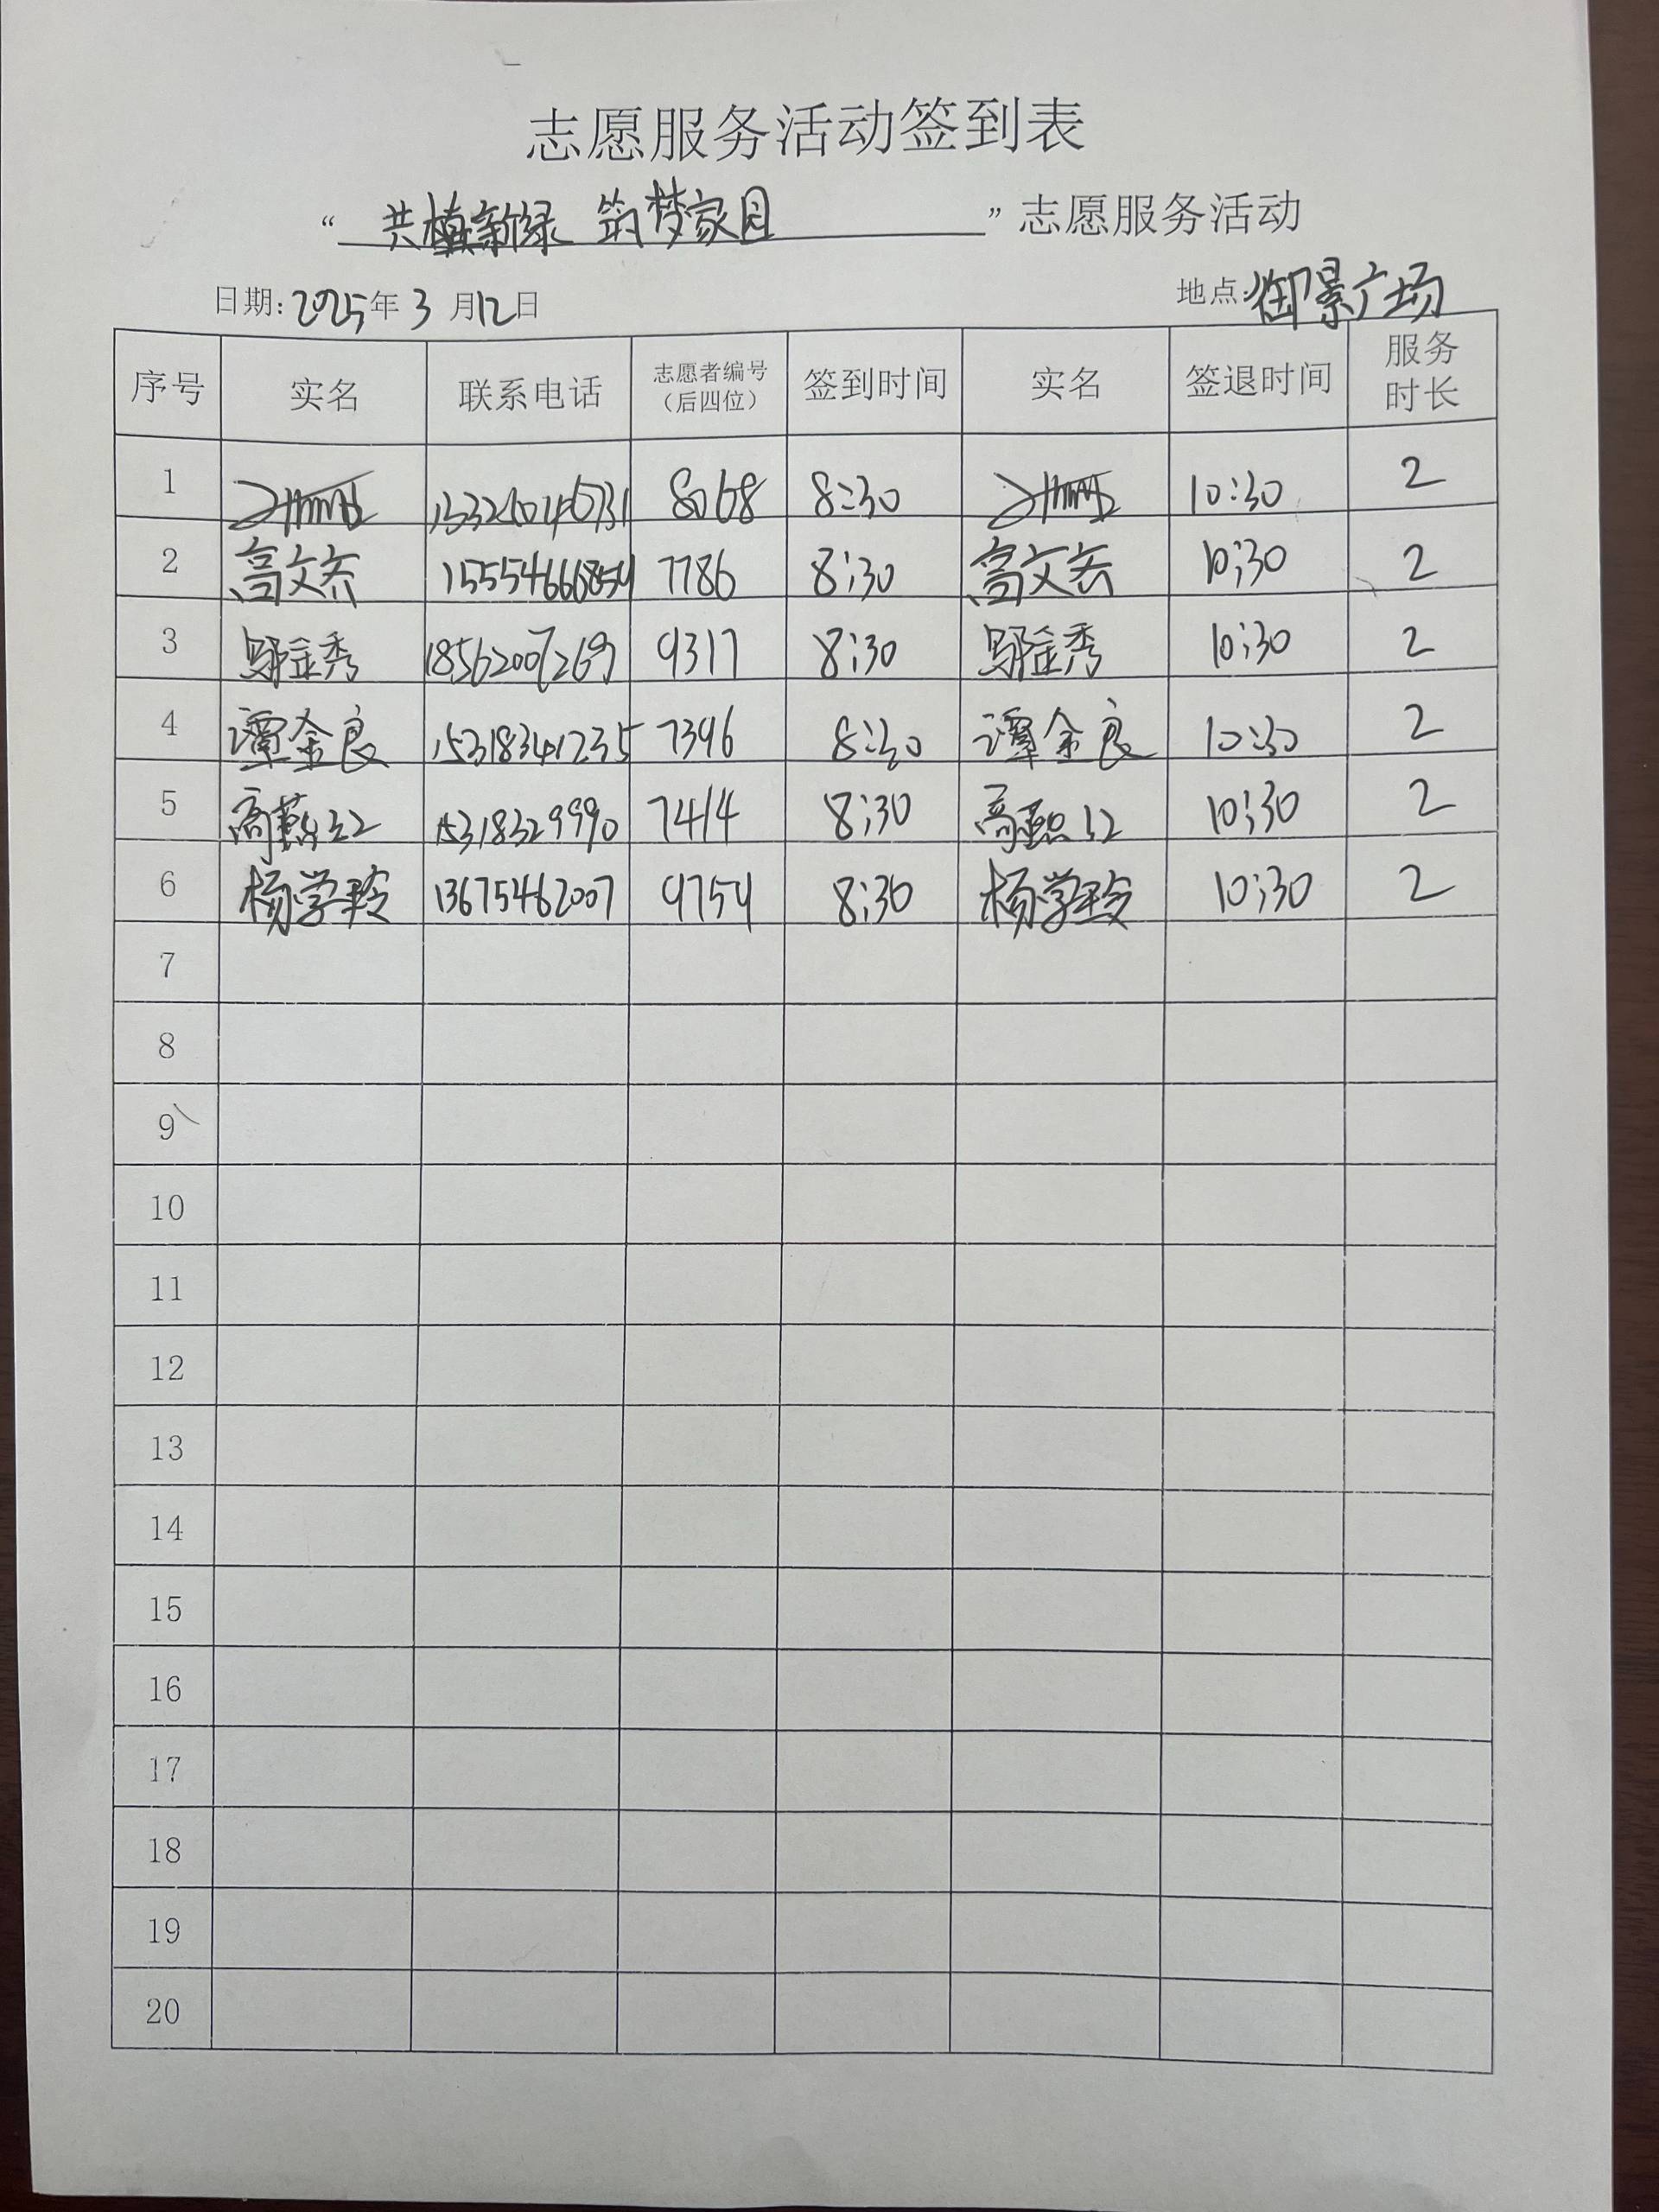 志愿服务活动签到表
“共植新绿 筑梦家园”志愿服务活动
日期:2025年3月12日 地点:御景广场
序号 实名 联系电话 志愿者编号（后四位） 签到时间 实名 签退时间 服务时长
1 8068 8:30 10:30 2
2 高文 15554666854 7786 8:30 高文 10:30 2
3 金秀 18562007269 9317 8:30 金秀 10:30 2
4 谭金良 15318341235 7396 8:30 谭金良 10:30 2
5 高 15318329990 7414 8:30 高 10:30 2
6 杨学玲 13675462007 9754 8:30 杨学玲 10:30 2
7
8
9
10
11
12
13
14
15
16
17
18
19
20